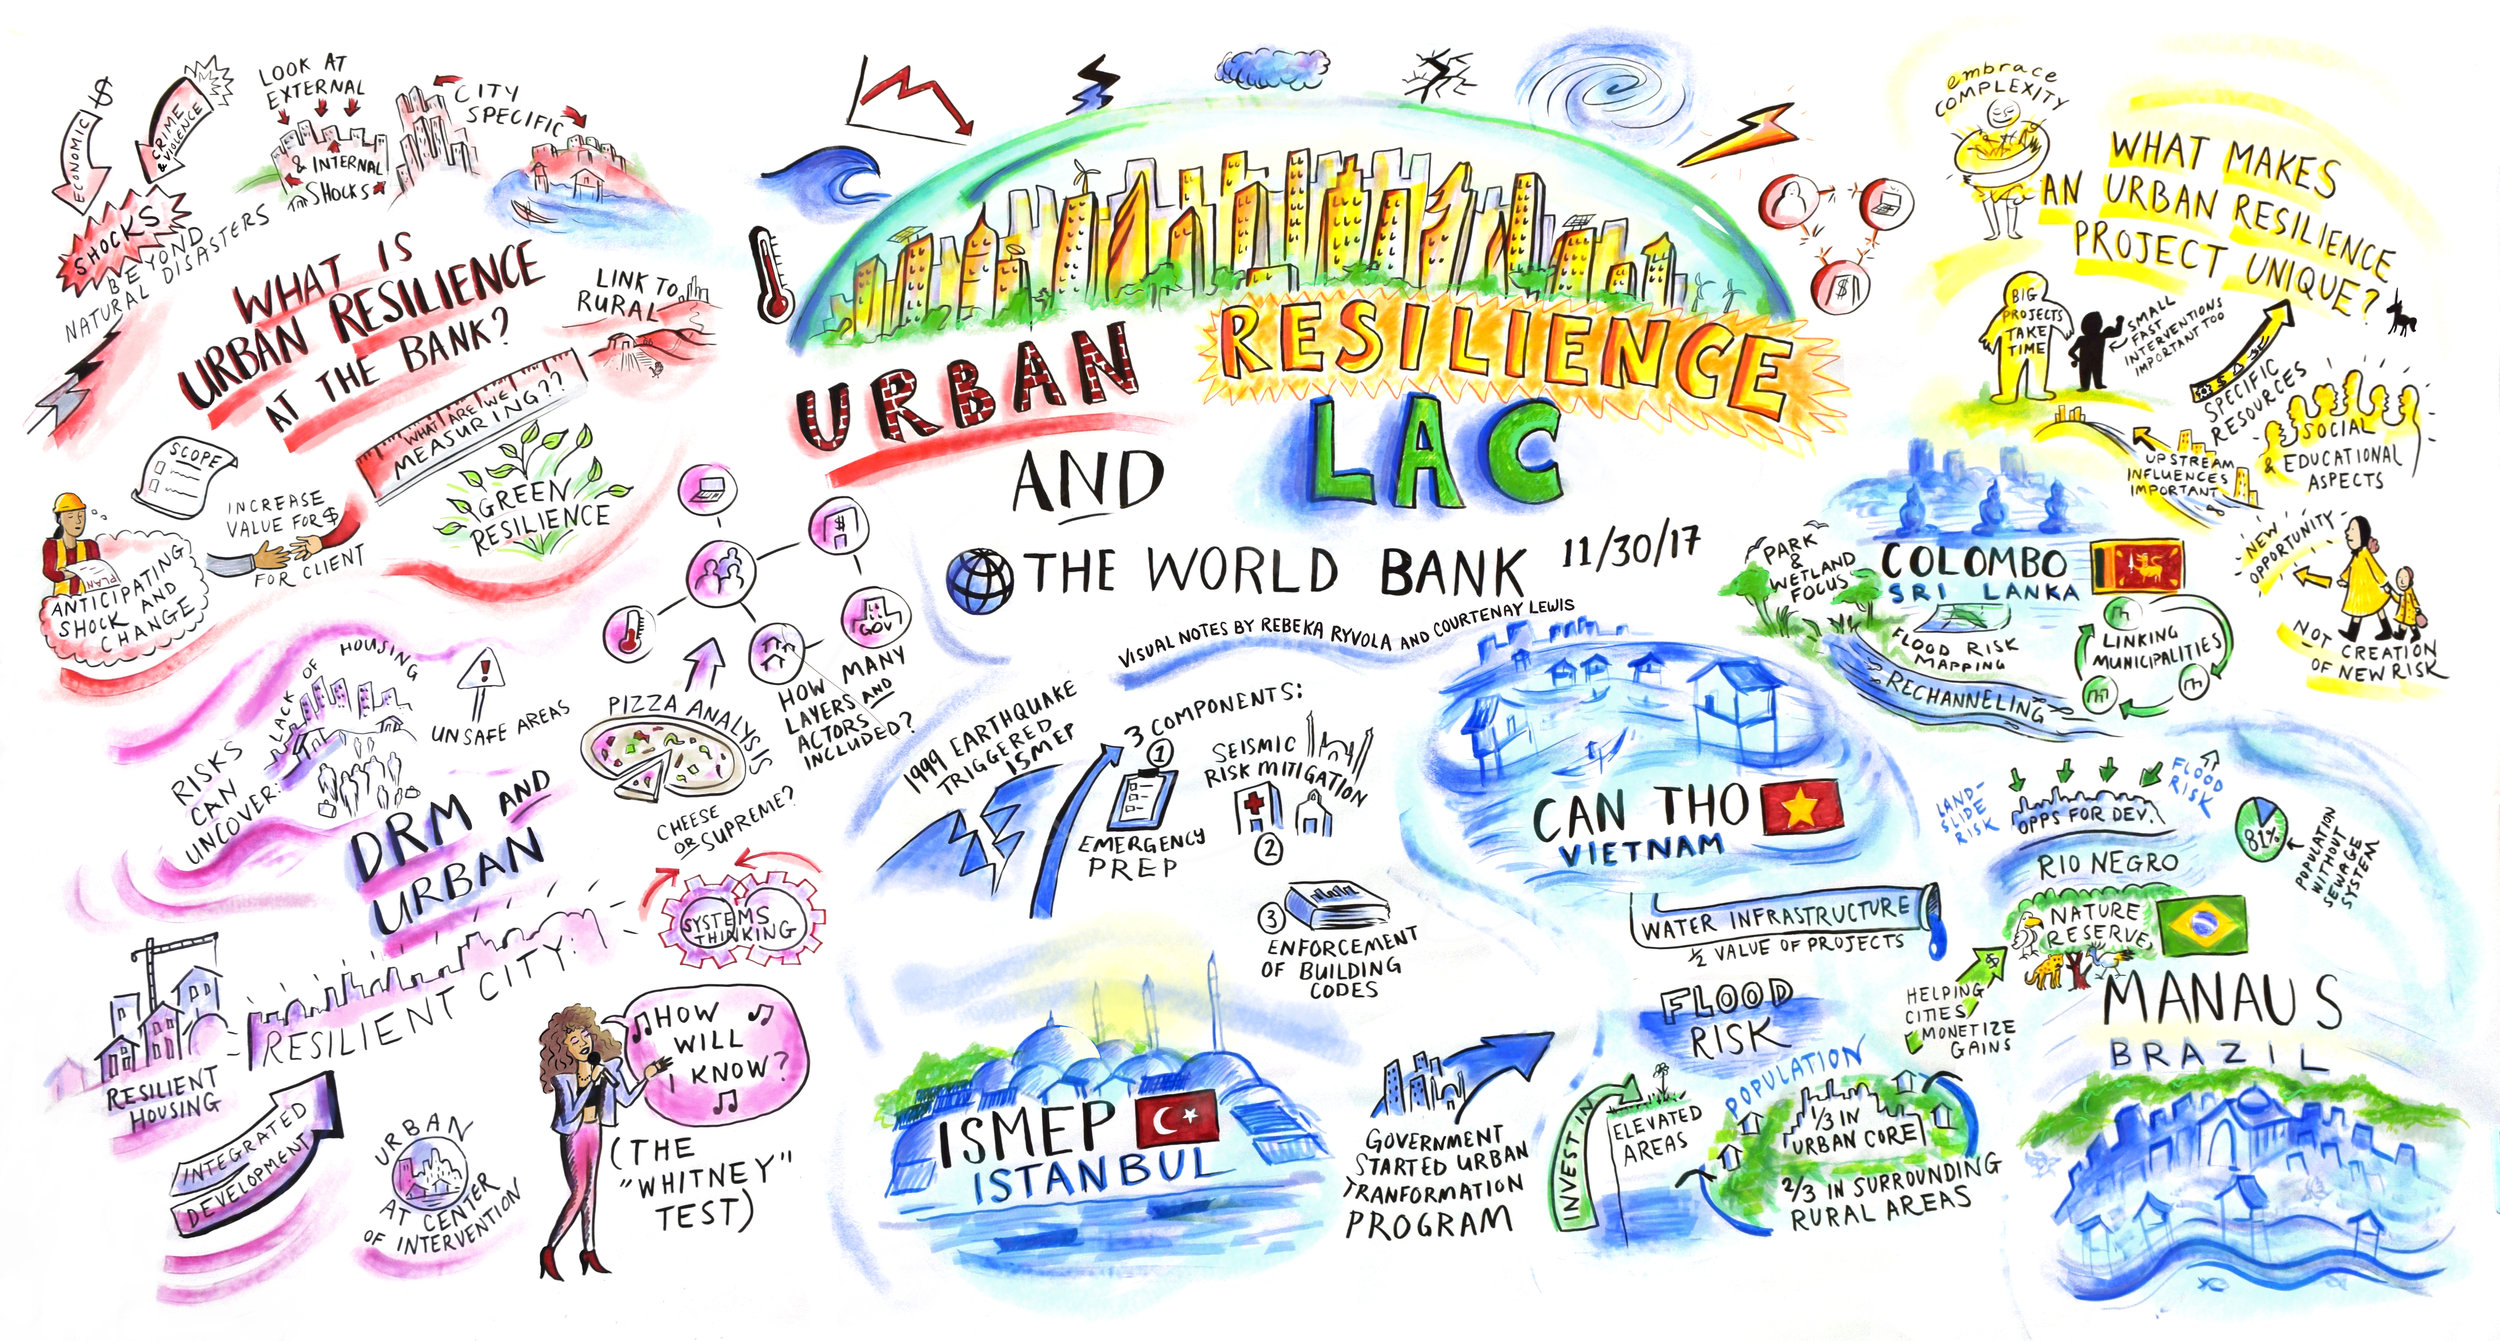 URBAN
RESILIENCE
AND
LAC
THE WORLD BANK
11/30/17
VISUAL NOTES BY REBEKA RYVOLA AND COURTENAY LEWIS
$
ECONOMIC
CRIME
& VIOLENCE
SHOCKS
BEYOND
NATURAL DISASTERS
LOOK AT
EXTERNAL
& INTERNAL
SHOCKS
CITY
SPECIFIC
WHAT IS
URBAN RESILIENCE
AT THE BANK?
LINK TO
RURAL
WHAT ARE WE
MEASURING??
SCOPE
INCREASE
VALUE FOR $
FOR CLIENT
GREEN
RESILIENCE
PLAN
ANTICIPATING
SHOCK AND
CHANGE
RISKS
CAN
UNCOVER:
LACK OF HOUSING
!
UNSAFE AREAS
DRM AND
URBAN
$
GOV
HOW MANY
LAYERS AND
ACTORS
INCLUDED?
PIZZA ANALYSIS
CHEESE
OR SUPREME?
SYSTEMS
THINKING
RESILIENT CITY
RESILIENT
HOUSING
INTEGRATED
DEVELOPMENT
URBAN
AT CENTER
OF INTERVENTION
HOW
WILL
I KNOW?
(THE
"WHITNEY"
TEST)
1999 EARTHQUAKE
TRIGGERED
ISMEP
3 COMPONENTS:
1
EMERGENCY
PREP
SEISMIC
RISK MITIGATION
2
3
ENFORCEMENT
OF BUILDING
CODES
ISMEP
ISTANBUL
GOVERNMENT
STARTED URBAN
TRANFORMATION
PROGRAM
CAN THO
VIETNAM
WATER INFRASTRUCTURE
1/2 VALUE OF PROJECTS
FLOOD
RISK
INVEST IN
ELEVATED
AREAS
POPULATION
1/3 IN
URBAN CORE
2/3 IN SURROUNDING
RURAL AREAS
$
embrace
COMPLEXITY
WHAT MAKES
AN URBAN RESILIENCE
PROJECT UNIQUE?
BIG
PROJECTS
TAKE
TIME
SMALL
FAST
INTERVENTIONS
IMPORTANT TOO
SPECIFIC
RESOURCES
SOCIAL
& EDUCATIONAL
ASPECTS
UPSTREAM
INFLUENCES
IMPORTANT
NEW
OPPORTUNITY
NOT CREATION
OF NEW RISK
COLOMBO
SRI LANKA
PARK
&
WETLAND
FOCUS
FLOOD RISK
MAPPING
LINKING
MUNICIPALITIES
RECHANNELING
LAND-
SLIDE
RISK
FLOOD
RISK
OPPS FOR DEV.
RIO NEGRO
81%
POPULATION
WITHOUT
SEWAGE
SYSTEM
NATURE
RESERVE
$
HELPING
CITIES
MONETIZE
GAINS
MANAUS
BRAZIL